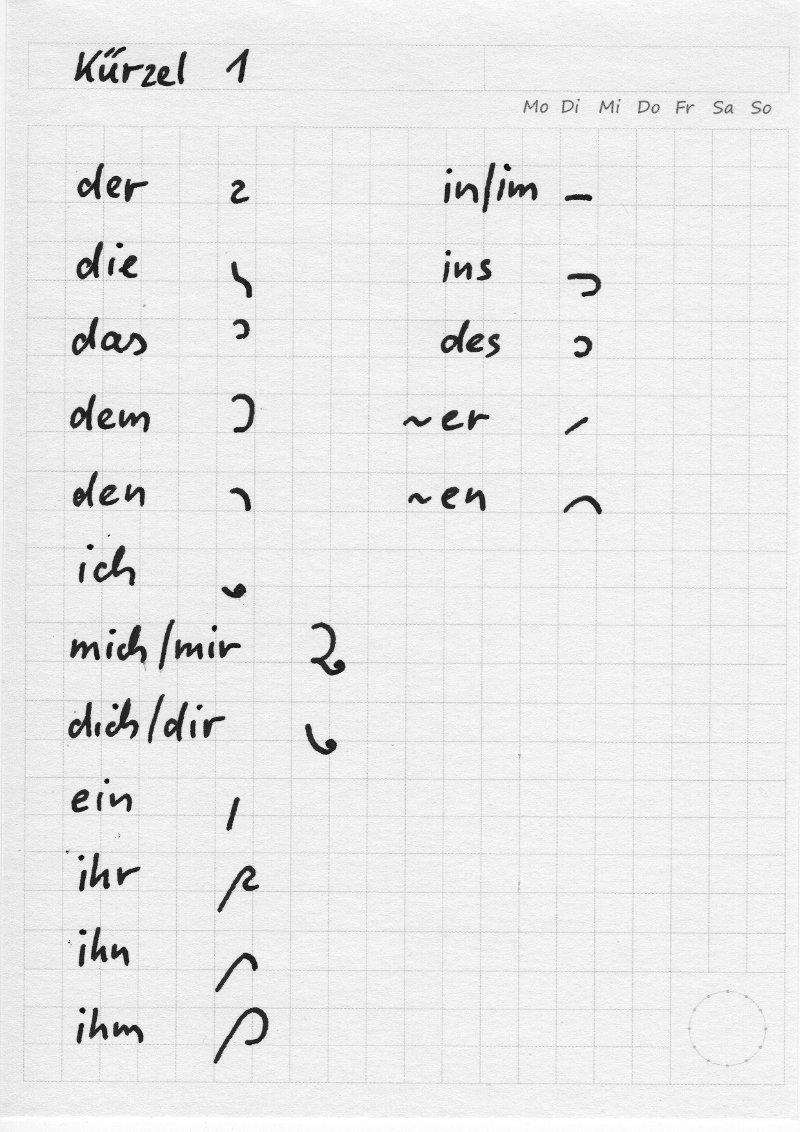 Kürzel 1
Mo Di Mi Do Fr Sa So
der
die
das
dem
den
ich
mich/mir
dich/dir
ein
ihr
ihn
ihm
in/im
ins
des
~er
~en